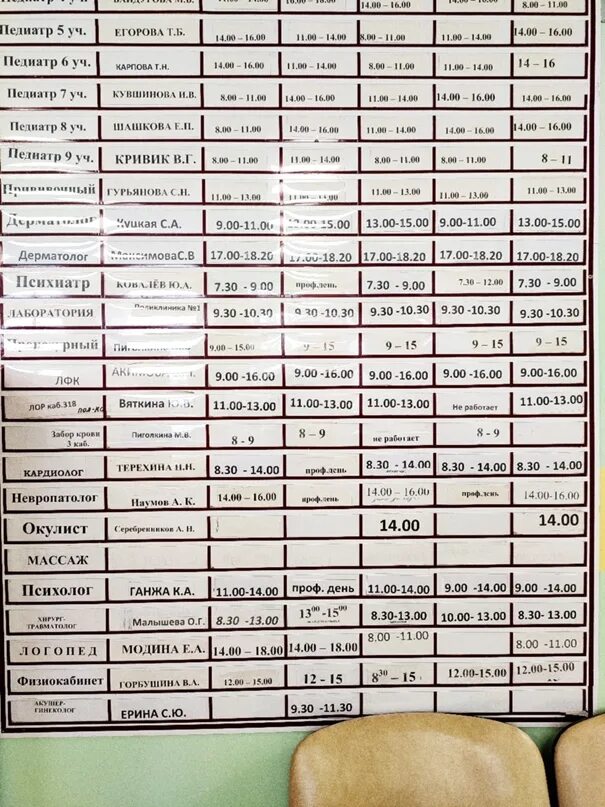 14.00 - 16.00 8.00 - 11.00
Педиатр 5 уч. ЕГОРОВА Т.Б. 14.00 – 16.00 11.00 – 14.00 8.00 – 11.00 11.00 – 14.00 14.00 – 16.00
Педиатр 6 уч. КАРПОВА Т.Н. 14.00 – 16.00 11.00 – 14.00 8.00 – 11.00 11.00 – 14.00 14 – 16
Педиатр 7 уч. КУВШИНОВА И.В. 8.00 – 11.00 14.00 – 16.00 11.00 – 14.00 14.00 – 16.00 14.00 – 16.00
Педиатр 8 уч. ШАШКОВА Е.П. 8.00 – 11.00 14.00 – 16.00 11.00 – 14.00 14.00 – 16.00 14.00 – 16.00
Педиатр 9 уч. КРИВИК В.Г. 8.00 – 11.00 11.00 – 14.00 8.00 – 11.00 8.00 – 11.00 8 – 11
Прививочный ГУРЬЯНОВА С.Н. 11.00 – 13.00 11.00 – 13.00 11.00 – 13.00 11.00 – 13.00 11.00 – 13.00
Дерматолог Куцкая С.А. 9.00-11.00 13.00-15.00 13.00-15.00 9.00-11.00 13.00-15.00
Дерматолог Максимова С.В 17.00-18.20 17.00-18.20 17.00-18.20 17.00-18.20 17.00-18.20
Психиатр КОВАЛЁВ Ю.А. 7.30 - 9.00 проф.день 7.30 - 9.00 7.30 – 12.00 7.30 - 9.00
ЛАБОРАТОРИЯ Поликлиника №1 9.30 -10.30 9.30 -10.30 9.30 -10.30 9.30 -10.30 9.30 -10.30
Процедурный 9.00 – 15.00 9 – 15 9 – 15 9 – 15 9 – 15
ЛФК 9.00 -16.00 9.00 -16.00 9.00 -16.00 9.00 -16.00 9.00 -16.00
ЛОР каб.318 Вяткина Ю.В. 11.00-13.00 11.00-13.00 11.00-13.00 Не работает 11.00-13.00
Забор крови 3 каб. Пиголкина М.В. 8 - 9 8 – 9 не работает 8 - 9
КАРДИОЛОГ ТЕРЕХИНА Н.Н. 8.30 - 14.00 проф.день 8.30 - 14.00 8.30 - 14.00 8.30 - 14.00
Невропатолог Наумов А. К. 14.00 – 16.00 проф.день 14.00 – 16.00 проф.день 14.00 -16.00
Окулист Серебренников А. Н. 14.00 14.00
МАССАЖ
Психолог ГАНЖА К.А. 11.00-14.00 проф. день 11.00-14.00 9.00 -14.00 9.00 -14.00
ХИРУРГ-ТРАВМАТОЛОГ Малышева О.Г. 8.30 -13.00 13⁰⁰ -15⁰⁰ 8.30-13.00 10.00- 13.00 8.30- 13.00
ЛОГОПЕД МОДИНА Е.А. 14.00 – 18.00 14.00 – 18.00 8.00 -11.00 8.00 -11.00
Физиокабинет ГОРБУШИНА В.А. 12.00 – 15.00 12 - 15 8³⁰ – 15 12.00-15.00 12.00-15.00
АКУШЕР-ГИНЕКОЛОГ ЕРИНА С.Ю. 9.30 -11.30